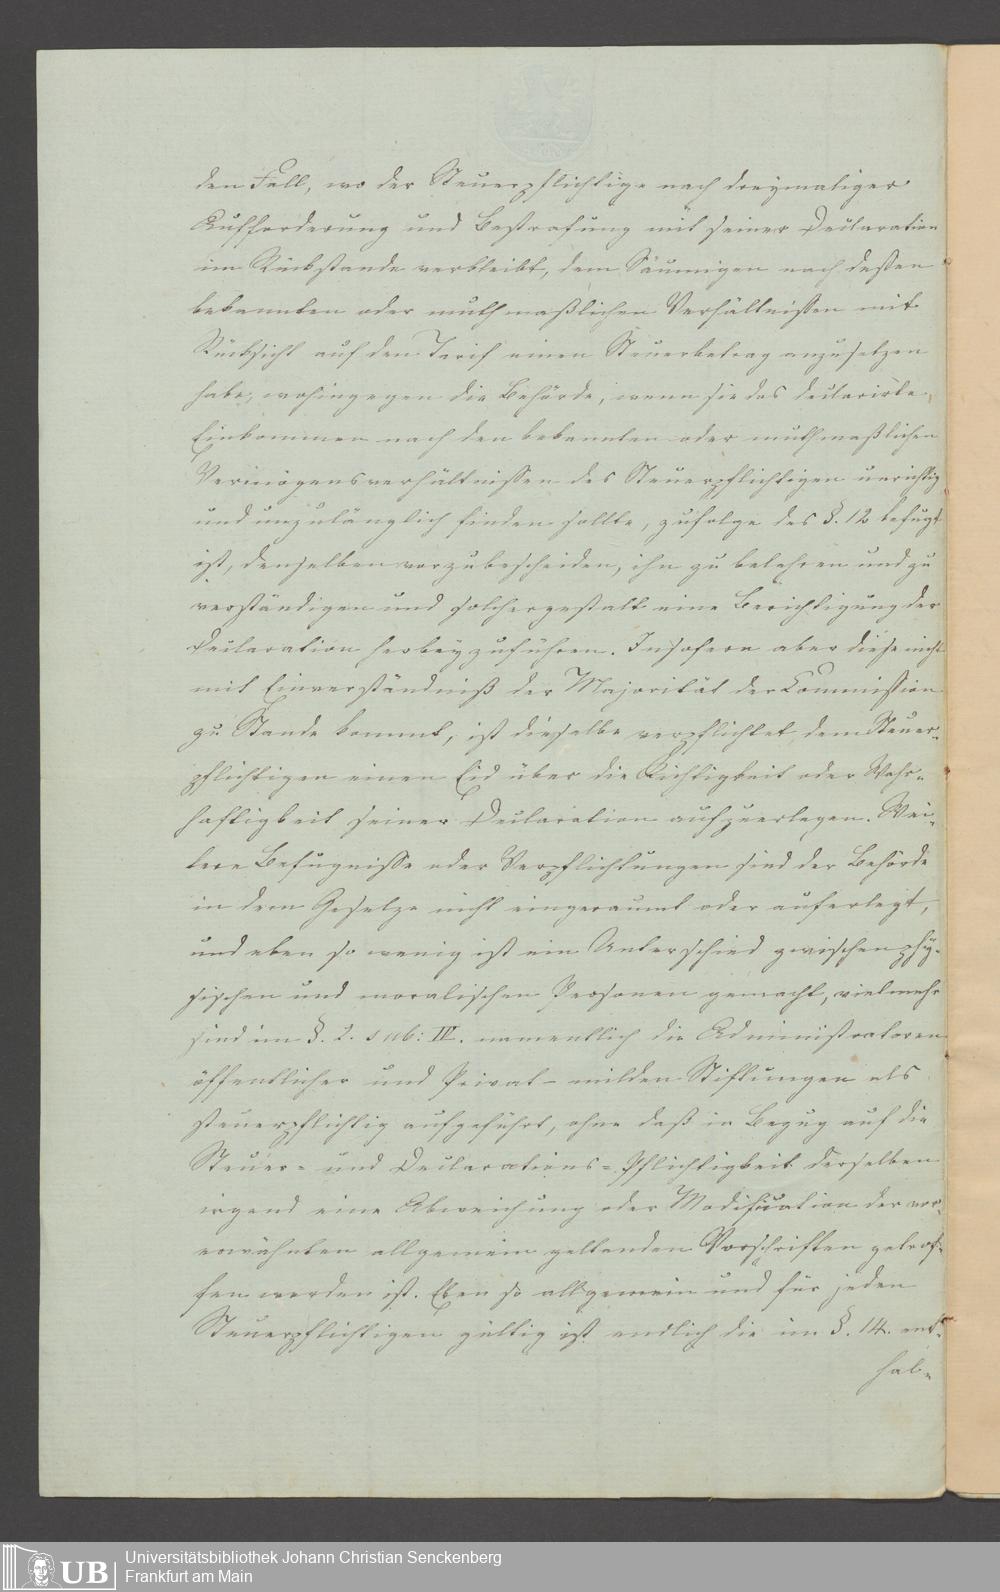 den Fall, wo der Steuerpflichtige nach dreymaliger
Aufforderung und Bestrafung mit seiner Declaration
im Rückstande verbleibt, dem Säumigen nach deßen
bekannten oder muthmaßlichen Verhältnißen mit
Rücksicht auf den Tarif einen Steuerbetrag anzusetzen
habe, wohingegen die Behörde, wenn sie das declarirte
Einkommen nach den bekannten oder muthmaßlichen
Vermögensverhältnißen des Steuerpflichtigen unrichtig
und unzulänglich finden sollte, zufolge des §. 12 befugt
ist, denselben vorzubescheiden, ihn zu belehren und zu
verständigen und solchergestalt eine Berichtigung der
Declaration herbeyzuführen. Insofern aber diese nicht
mit Einverständniß der Majorität der Commißion
zu Stande kommt, ist dieselbe verpflichtet, dem Steuer-
pflichtigen einen Eid über die Richtigkeit oder Wahr-
haftigkeit seiner Declaration aufzuerlegen. Wei-
tere Befugniße oder Verpflichtungen sind der Behörde
in dem Gesetze nicht eingeraumt oder auferlegt,
und eben so wenig ist ein Unterschied zwischen phy-
sischen und moralischen Personen gemacht, vielmehr
sind im §. 2. sub: IV. namentlich die Administratoren
öffentlicher und Privat-milden Stiftungen als
steuerpflichtig aufgeführt, ohne daß in Bezug auf die
Steuer- und Declarations-Pflichtigkeit derselben
irgend eine Abweichung oder Modification der vor-
erwähnten allgemein geltenden Vorschriften getrof-
fen worden ist. Eben so allgemein und für jeden
Steuerpflichtigen gültig ist endlich die im §. 14. ent-
hal-
UB
Universitätsbibliothek Johann Christian Senckenberg
Frankfurt am Main